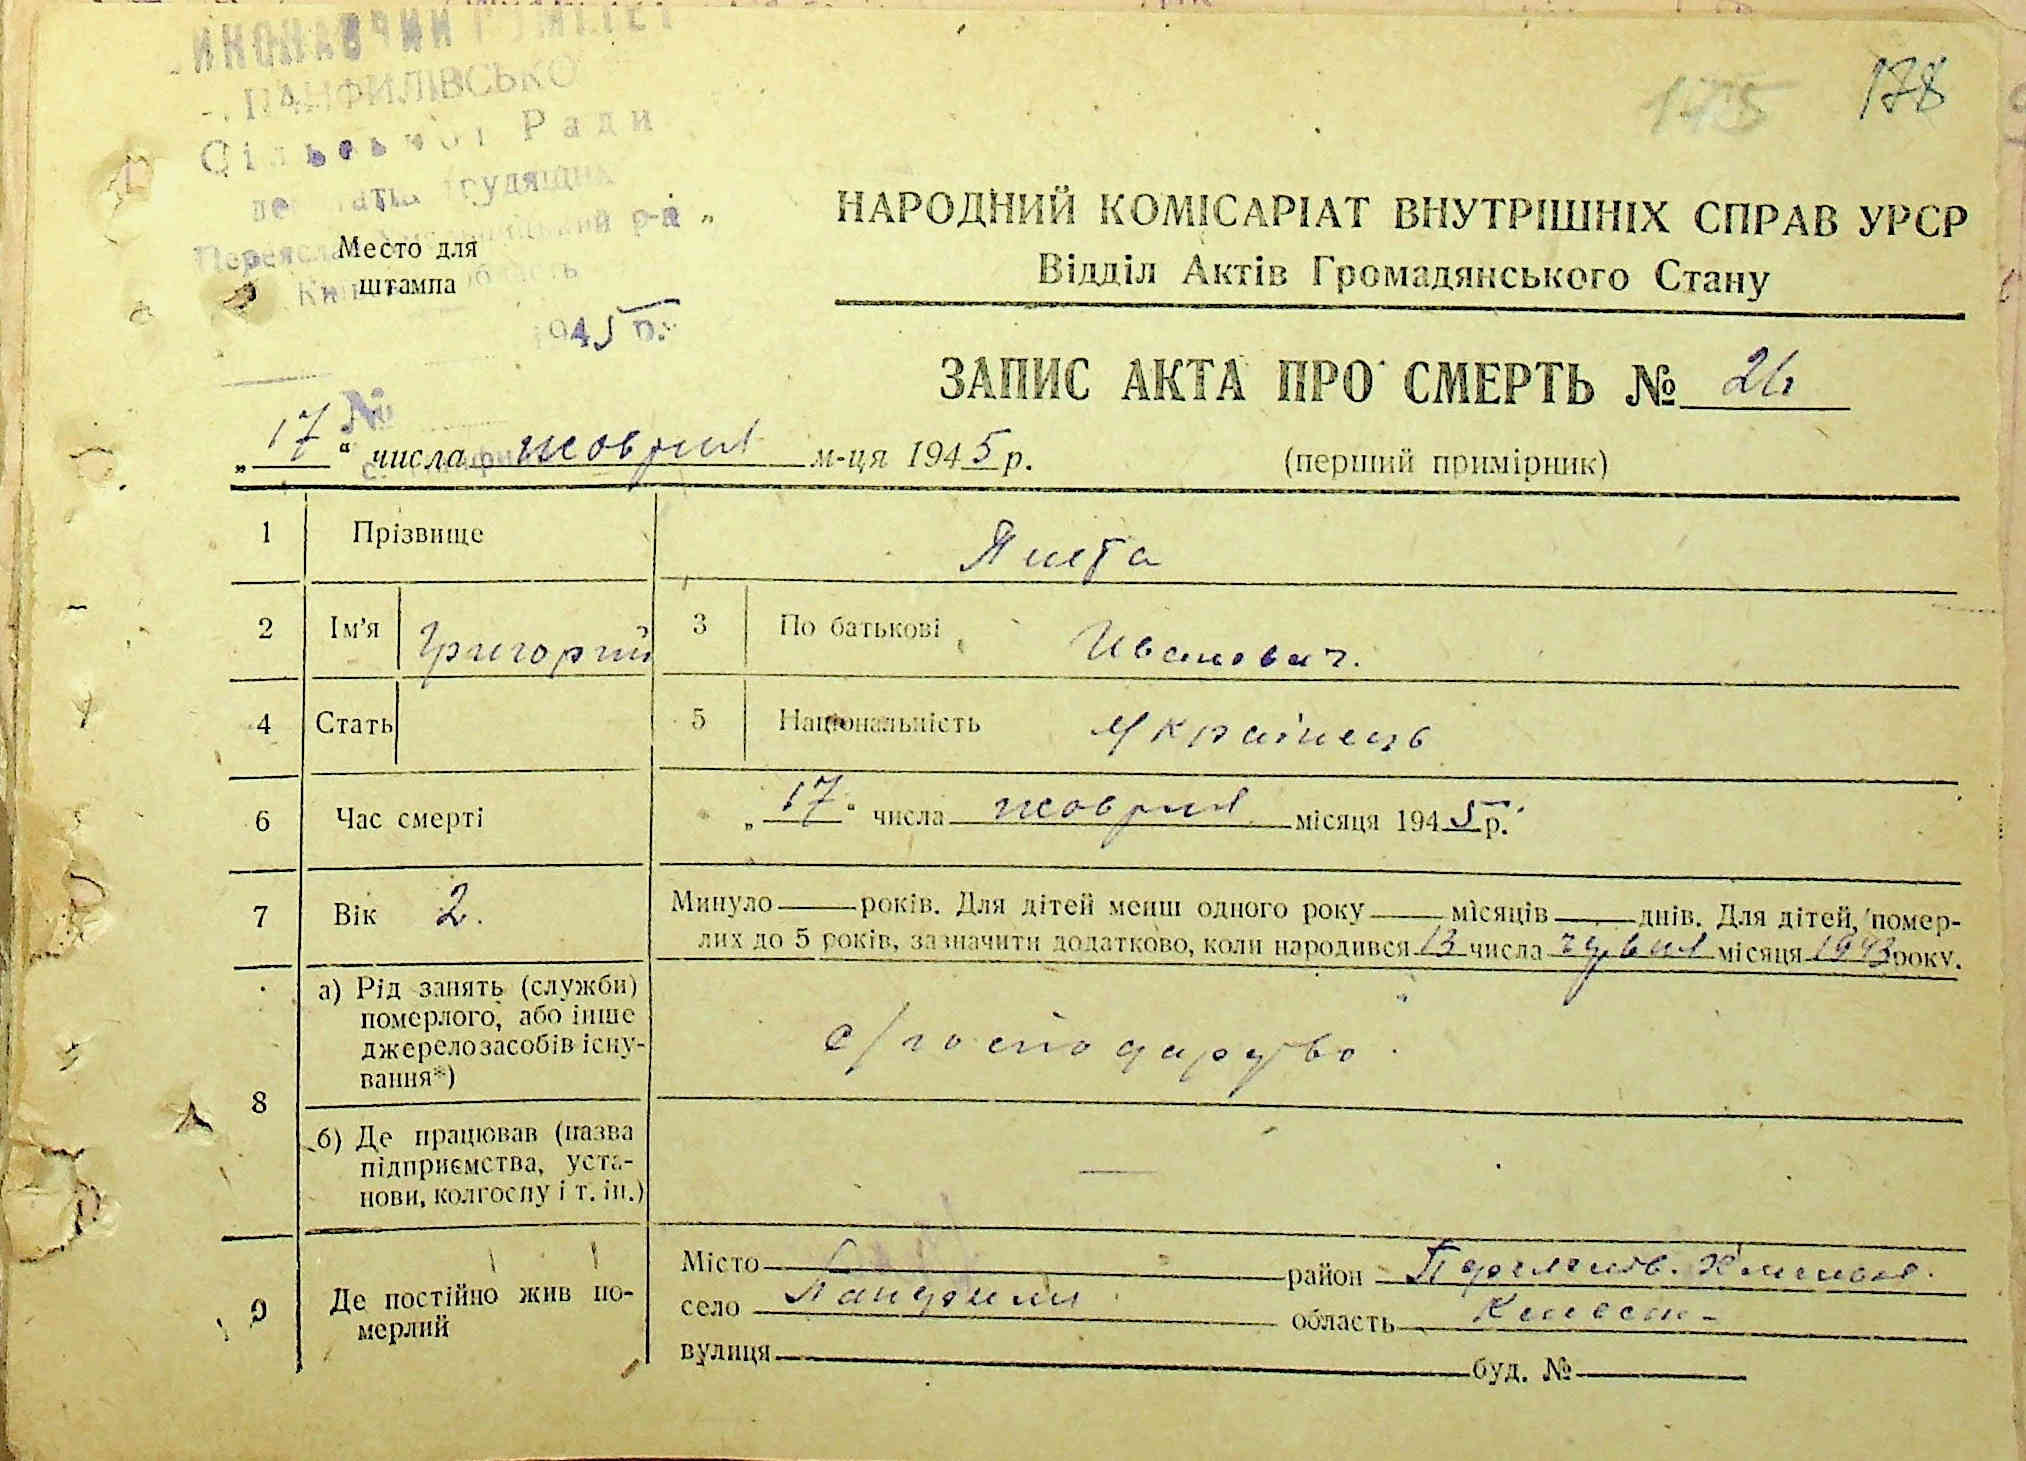 178
175
ВИКОНАВЧИЙ КОМІТЕТ
ПАНФИЛІВСЬКО
Сільської Ради
депутатів трудящих
р-н
область
1945 р.
№
Место для
штампа
НАРОДНИЙ КОМІСАРІАТ ВНУТРІШНІХ СПРАВ УРСР
Відділ Актів Громадянського Стану
ЗАПИС АКТА ПРО СМЕРТЬ № 26
„17“ числа жовтня м-ця 1945 р.
(перший примірник)
1 Прізвище
2 Ім'я Григорий 3 По батькові Иванович.
4 Стать 5 Національність Українець
6 Час смерті „17“ числа жовтня місяця 1945 р.
7 Вік 2. Минуло — років. Для дітей менш одного року — місяців — днів. Для дітей, помер-
лих до 5 років, зазначити додатково, коли народився 13 числа червня місяця 1943 року.
8 а) Рід занять (служби)
померлого, або інше
джерело засобів існу-
вання*)
с/господарство
б) Де працював (назва
підприємства, уста-
нови, колгоспу і т. ін.)
—
9 Де постійно жив по-
мерлий
Місто район
село Панфили область Киевск-
вулиця буд. №